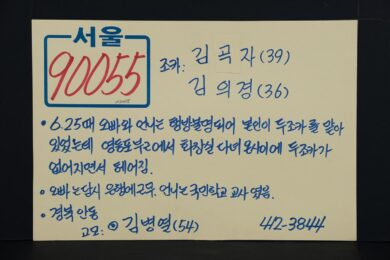 서울
90055
조카: 김곡자(39)
김의경(36)
• 6.25때 오빠와 언니는 행방불명되어 본인이 두조카를 맡아
있었는데 영등포부근에서 화장실 다녀온사이에 두조카가
없어지면서 헤어짐.
• 오빠는당시 은행에근무. 언니는 국민학교 교사 였음.
• 경북 안동
고모: 김병열(54) 412-3844